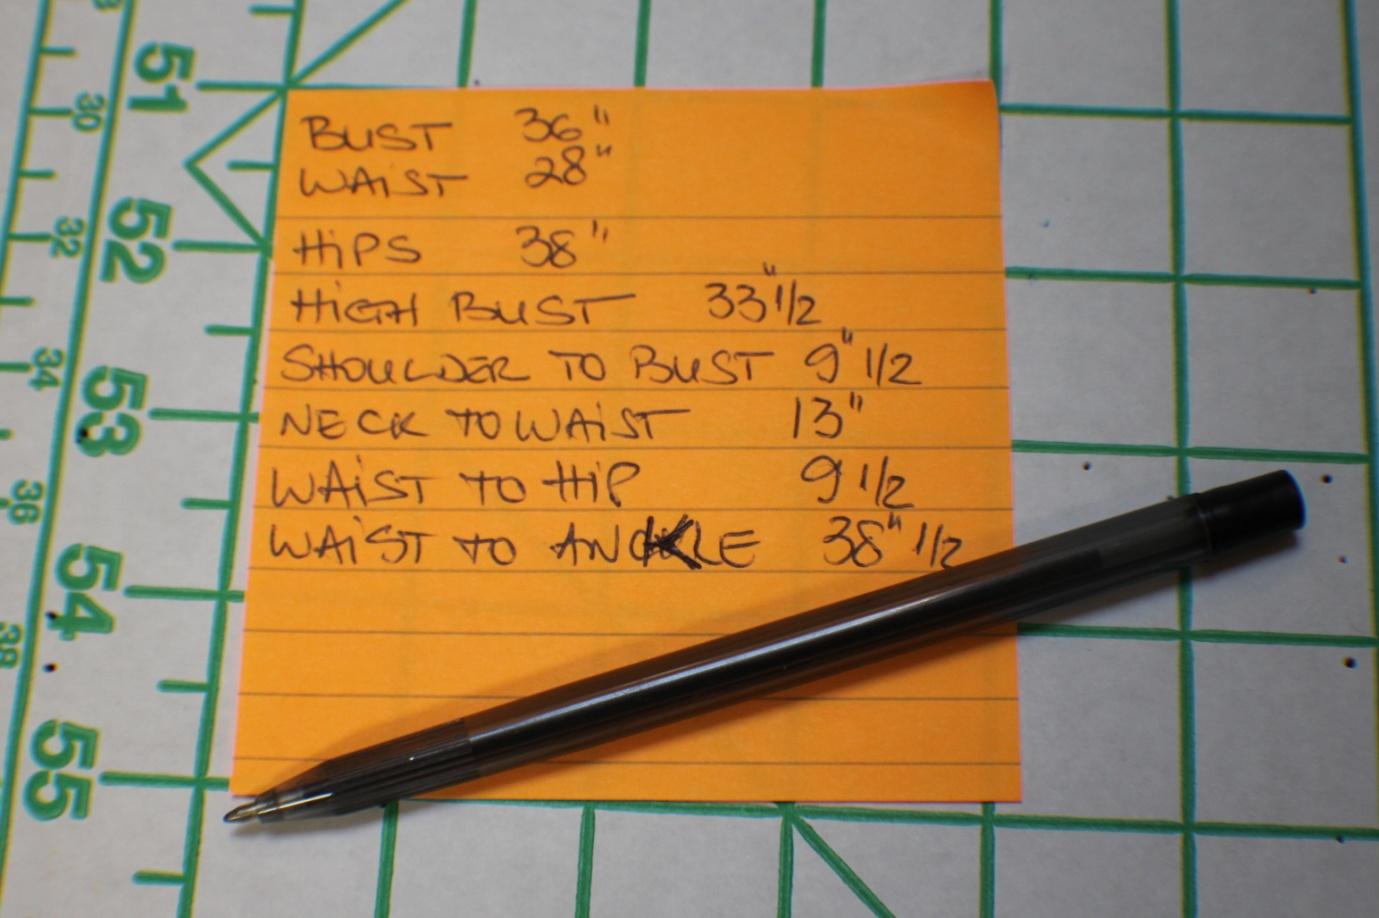 51
30
52
32
34
53
36
54
38
55
BUST 36"
WAiST 28"
HiPS 38"
HIGH BUST 33"1/2
SHOULDER TO BUST 9"1/2
NECK TO WAiST 13"
WAiST TO HiP 9 1/2
WAiST TO ANKLE 38"1/2